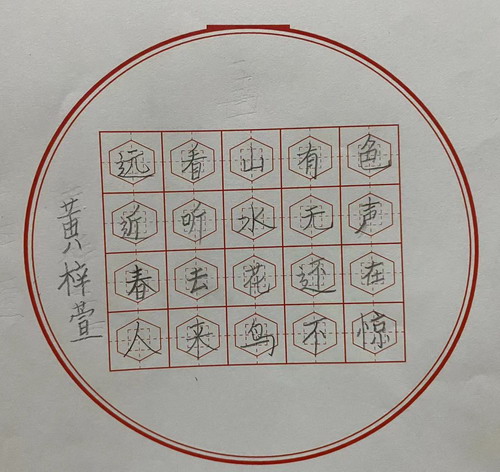 远看山有色
近听水无声
春去花还在
人来鸟不惊
黄梓萱